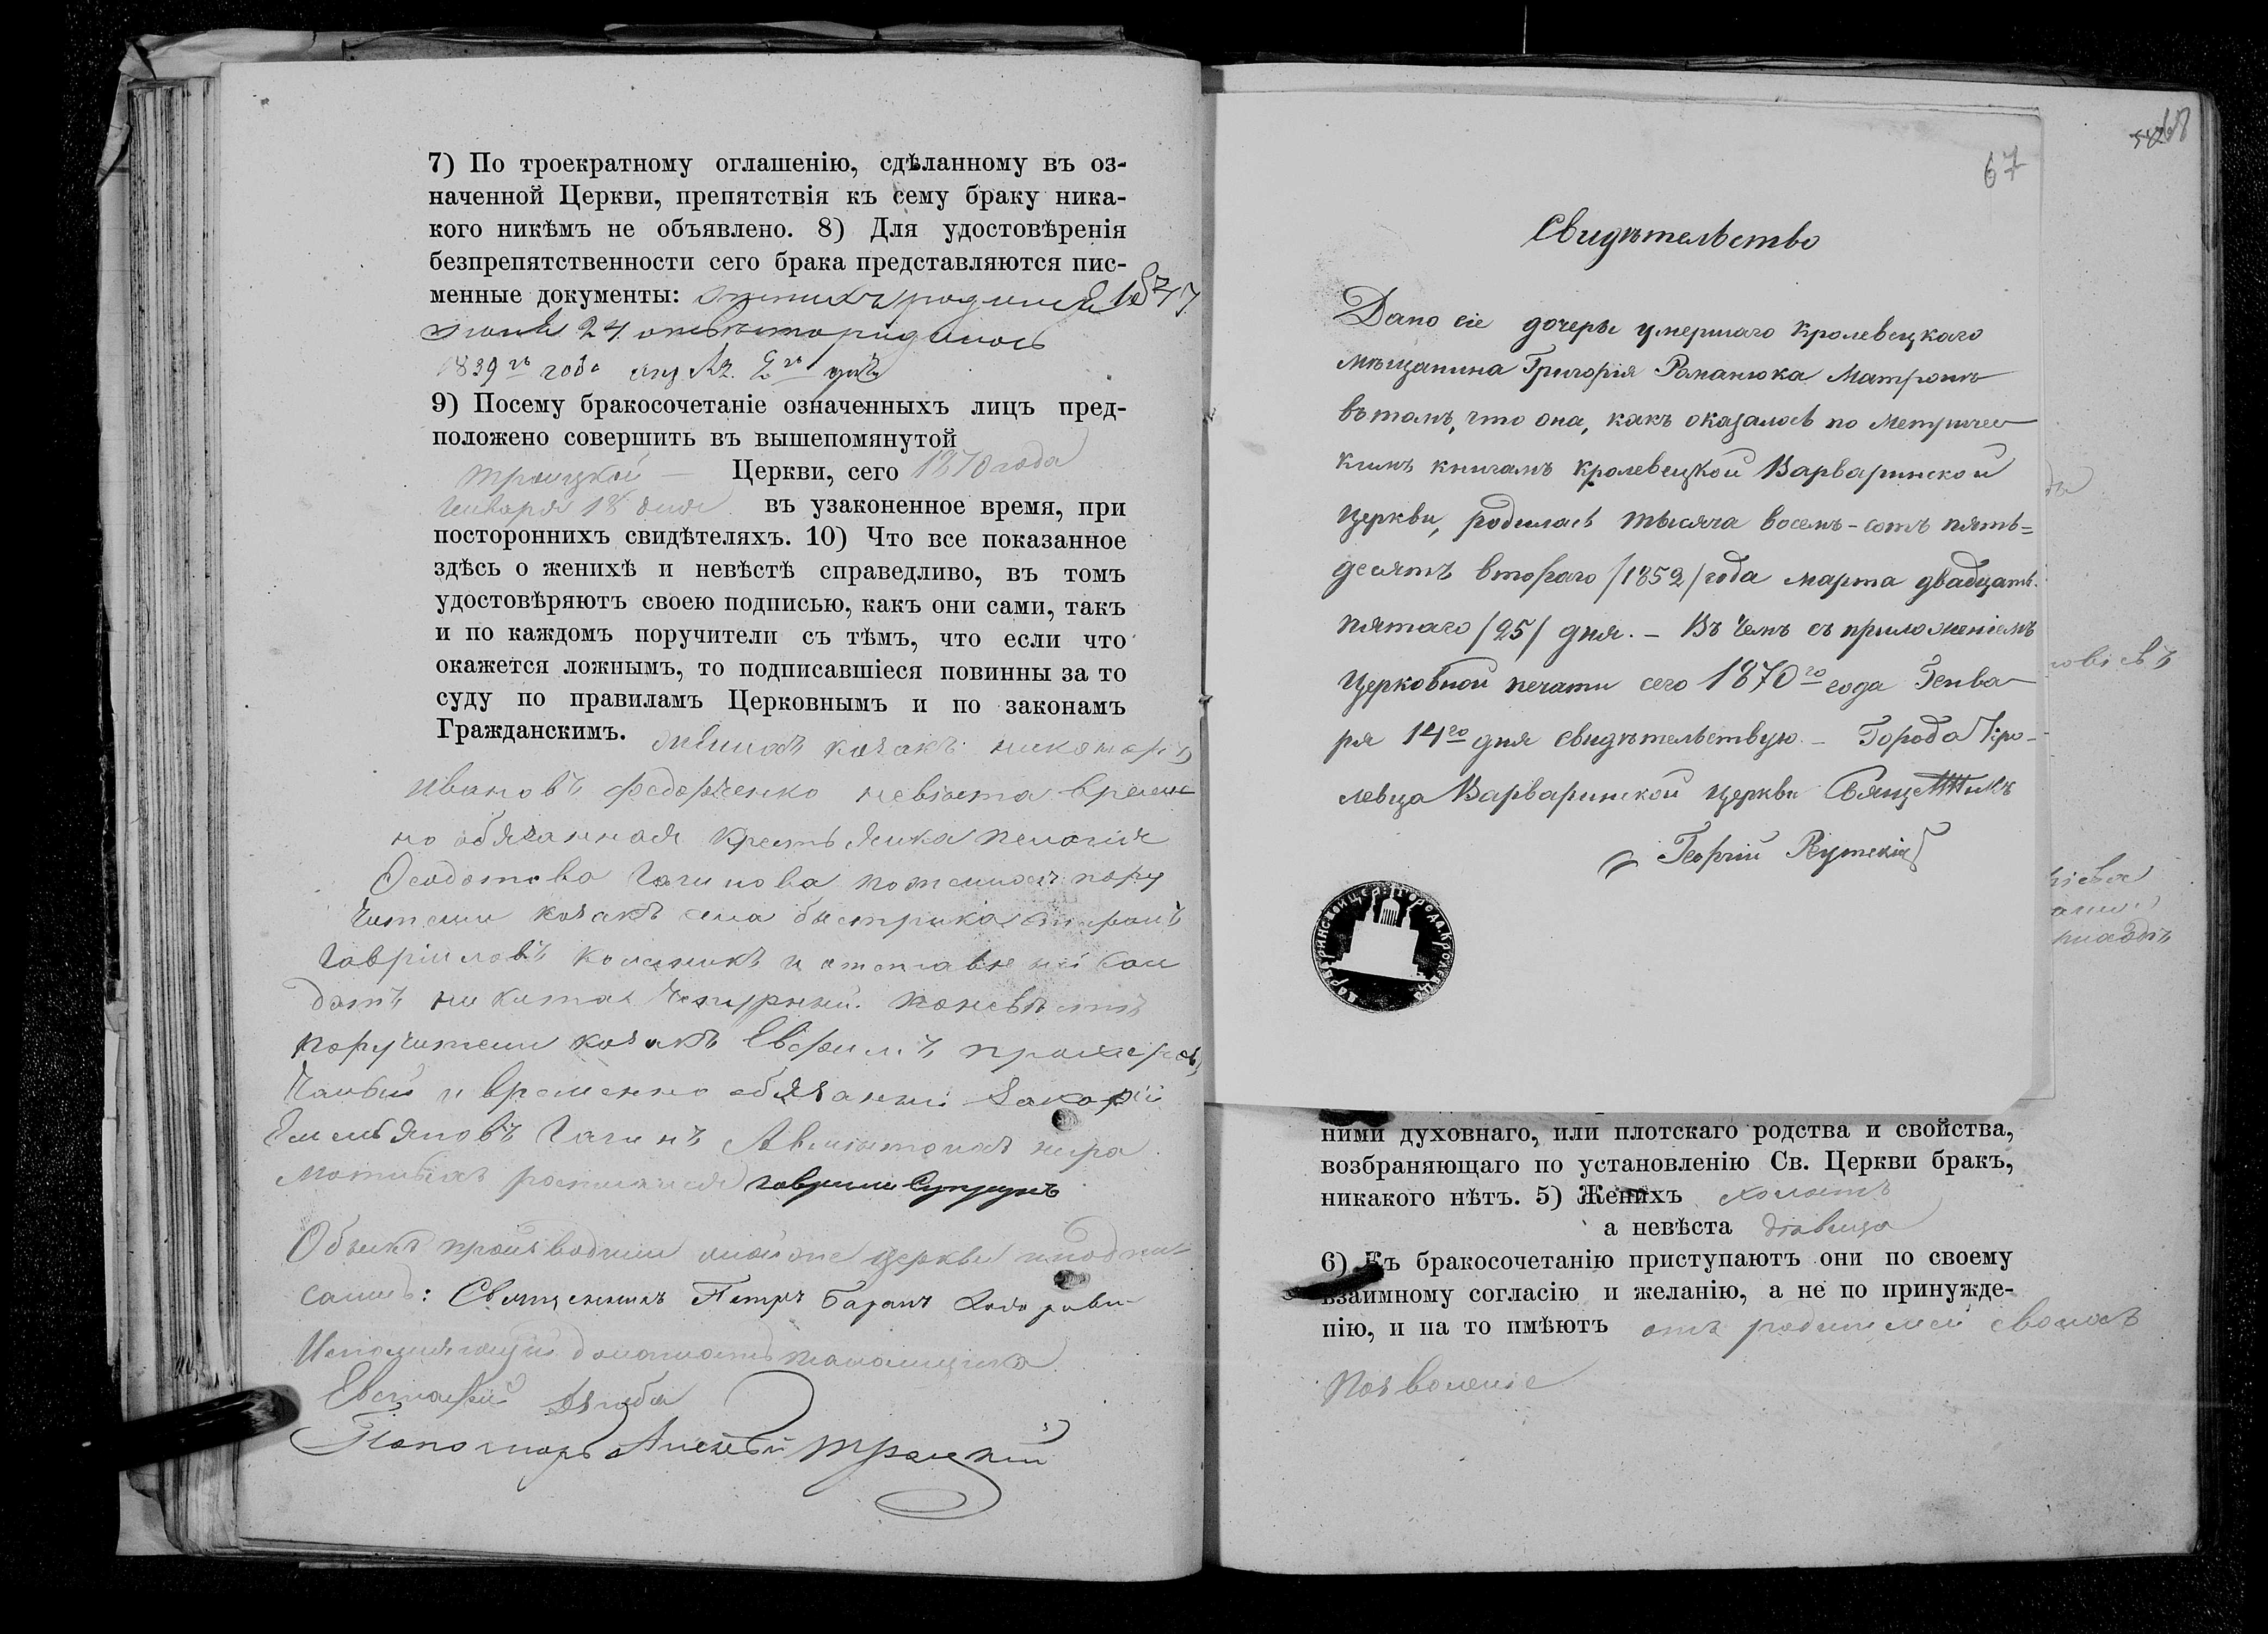 7) По троекратному оглашенію, сдѣланному въ оз-
наченной Церкви, препятствія къ сему браку ника-
кого никѣмъ не объявлено. 8) Для удостовѣренія
безпрепятственности сего брака представляются пис-
менные документы: женихъ родился 1847
24
1839 года
9) Посему бракосочетаніе означенныхъ лицъ пред-
положено совершить въ вышепомянутой
Троицкой — Церкви, сего 1870 года
Генваря 18 дня въ узаконенное время, при
постороннихъ свидѣтеляхъ. 10) Что все показанное
здѣсь о женихѣ и невѣстѣ справедливо, въ томъ
удостовѣряютъ своею подписью, какъ они сами, такъ
и по каждомъ поручители съ тѣмъ, что если что
окажется ложнымъ, то подписавшіеся повинны за то
суду по правиламъ Церковнымъ и по законамъ
Гражданскимъ. женихъ козакъ
Ивановъ Федорченко невѣста времен
но обязанная крестьянка Пелагія
Феодотова Гагинова по женихѣ пору
чители козакъ села Быстрика
Гавріиловъ и отставный сол
датъ Никита Чепурный. По невѣстѣ
поручители козакъ Евфимъ Прохоровъ
и временно обязанный Захарій
Емельяновъ Гагинъ А вмѣсто ихъ негра
мотныхъ росписался Гавріилъ Супрунъ
Обыскъ производили тойже церкви и подпи
сали: Священникъ Петръ Баранъ
Исполняющій должность псаломщика
Евстафій Дзюба
Пономарь Алексѣй Троицкій
67
68
Свидѣтельство
Дано сіе дочери умершаго Кролевецкаго
мѣщанина Григорія Романюка Матронѣ
въ томъ, что она, какъ оказалось по Метричес
кимъ книгамъ Кролевецкой Варваринской
Церкви, родилась тысяча восемь-сотъ пять=
десятъ втораго /1852/ года марта двадцать
пятаго /25/ дня. — Въ чемъ съ приложеніемъ
Церковной печати сего 1870го года Генва
ря 14го дня свидѣтельствую. — Города Кро-
левца Варваринской церкви Священникъ
Георгій Реутскій
Варваринской Цер. Города Кролевца
ними духовнаго, или плотскаго родства и свойства,
возбраняющаго по установленію Св. Церкви бракъ,
никакого нѣтъ. 5) Женихъ холостъ
а невѣста дѣвица
6) Къ бракосочетанію приступаютъ они по своему
взаимному согласію и желанію, а не по принужде-
нію, и на то имѣютъ отъ родителей своихъ
позволеніе